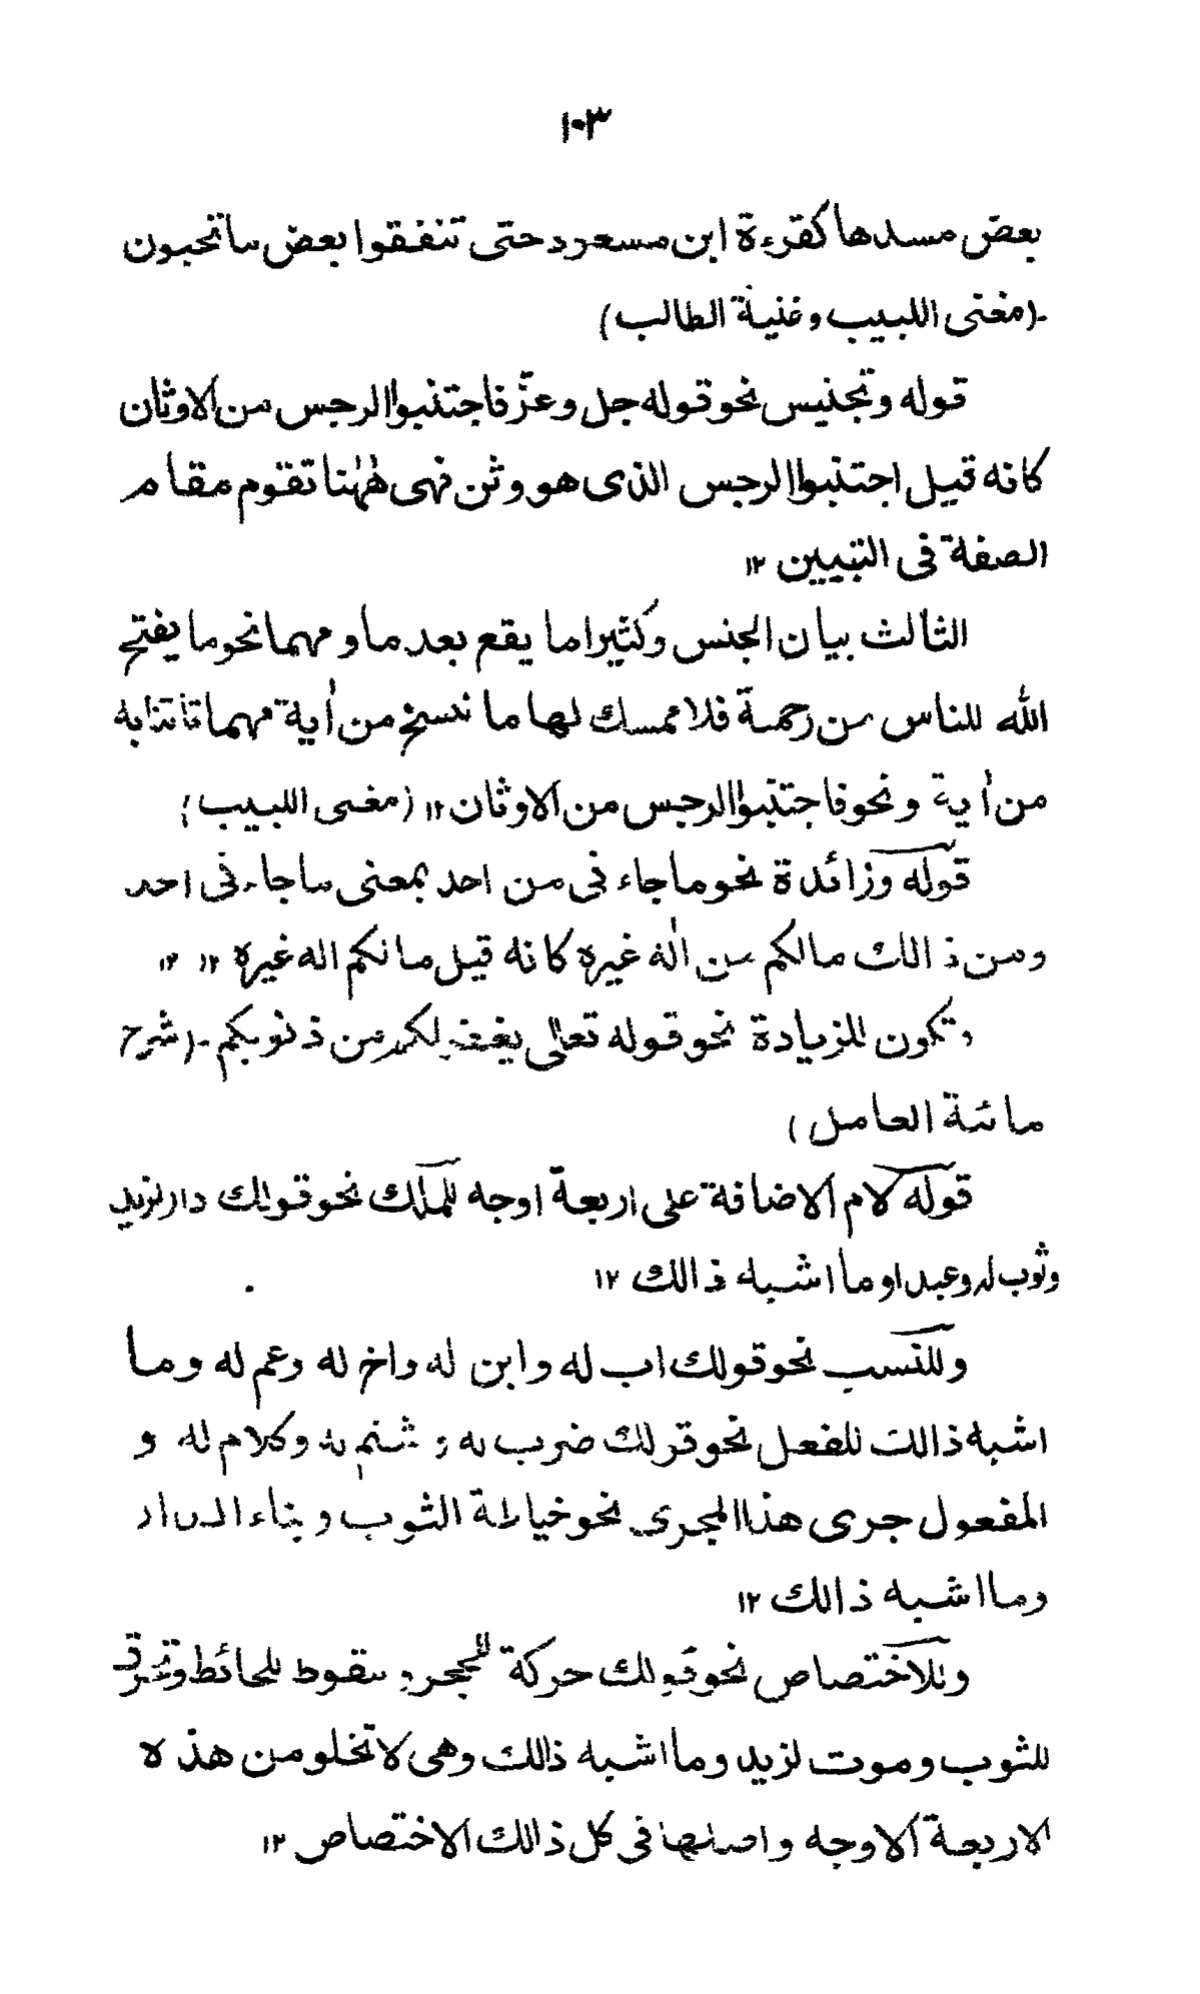 ١٠٣
بعض مسدها كقرءة ابن مسعود حتى تنفقوا بعض ما تحبون
-(مغنى اللبيب وغنية الطالب)
قوله وتجنيس نحو قوله جل وعزّ فاجتنبوا الرجس من الاوثان
كانه قيل اجتنبوا الرجس الذى هو وثن فهى هٰهٰنا تقوم مقام
الصفة فى التبيين ١٢
الثالث بيان الجنس وكثيرا ما يقع بعد ما و مهما نحو ما يفتح
الله للناس من رحمة فلا ممسك لها ما ننسخ من اٰية مهما تاتنا به
من اٰية ونحو فاجتنبوا الرجس من الاوثان ١٢ (مغنى اللبيب)
قوله وزائدة نحو ما جاء نى من احد بمعنى ما جاء نى احد
ومن ذالك مالكم من اله غيره كانه قيل مالكم اله غيره ١٢ ١٢
وتكون للزيادة نحو قوله تعالى يغفر لكم من ذنوبكم -(شرح
مائة العامل)
قوله لام الاضافة على اربعة اوجه للملك نحو قولك دار لزيد
وثوب له وعبد او ما اشبه ذالك ١٢
وللنسب نحو قولك اب له وابن له واخ له وعم له وما
اشبه ذالك للفعل نحو قولك ضرب له و شتم له وكلام له و
المفعول جرى هذا المجرى نحو خياطة الثوب وبناء الدار
وما اشبه ذالك ١٢
وللاختصاص نحو قولك حركة للحجر و سقوط للحائط وتمزق
للثوب وموت لزيد وما اشبه ذالك وهى لا تخلو من هذه
الاربعة الاوجه واصلها فى كل ذالك الاختصاص ١٢